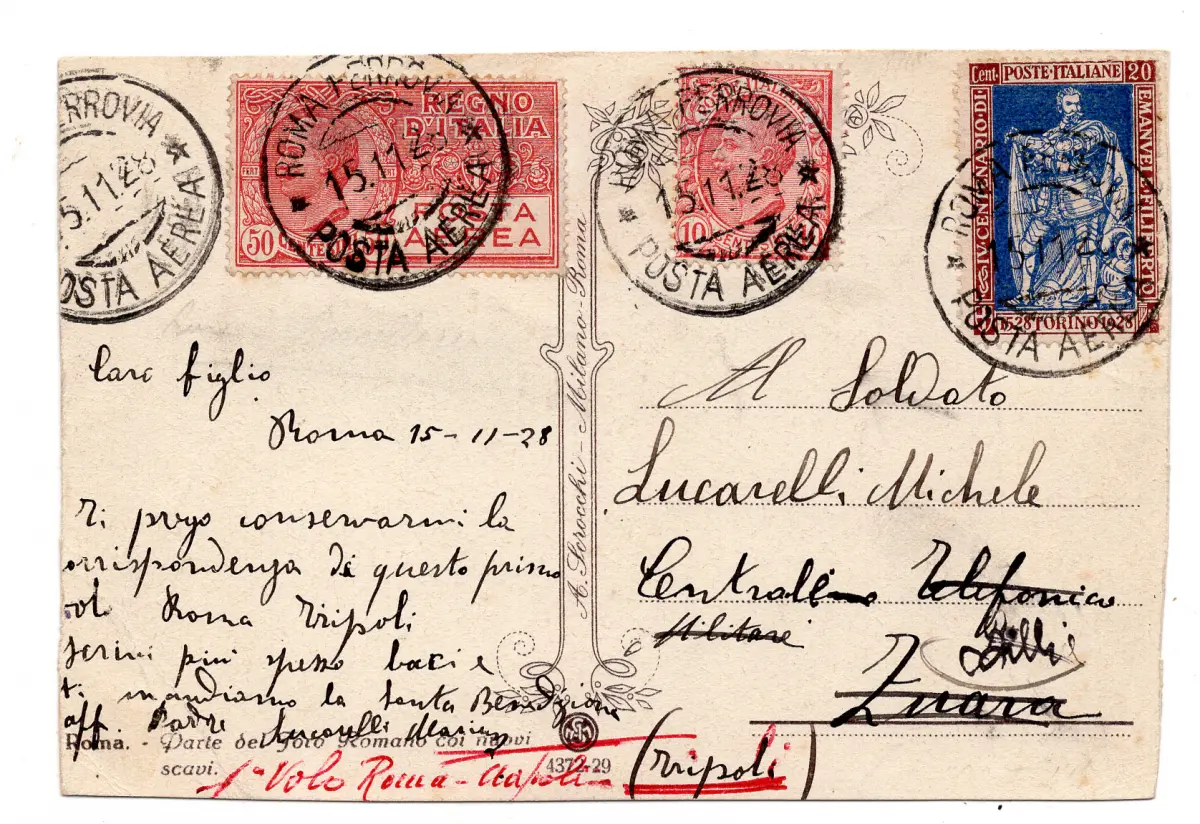 ERROVIA
5.11.28
OSTA AEREA
REGNO
D'ITALIA
50 CENTESIMI
POSTA
AEREA
ROMA FERROVIA
15.11.28
POSTA AEREA
10
ROMA FERROVIA
15.11.28
POSTA AEREA
Cent. POSTE·ITALIANE 20
IV CENTENARIO·DI·
EMANVELE·FILIBERTO
1528 TORINO 1928
ROMA FERROVIA
15.11.28
POSTA AEREA
Caro figlio
Roma 15-11-28
Ti prego conservarmi la
orrispondenza di questo primo
volo Roma Tripoli
scrivi più spesso baci e
ti mandiamo la Santa Benedizione
aff. Padre Lucarelli
Roma. - Parte del foro Romano coi nuovi
scavi.
4372-29
1° Volo Roma-Napoli-
(Tripoli)
A. Scrocchi - Milano-Roma
Al Soldato
Lucarelli Michele
Centralino Telefonico
Militare
Zuara